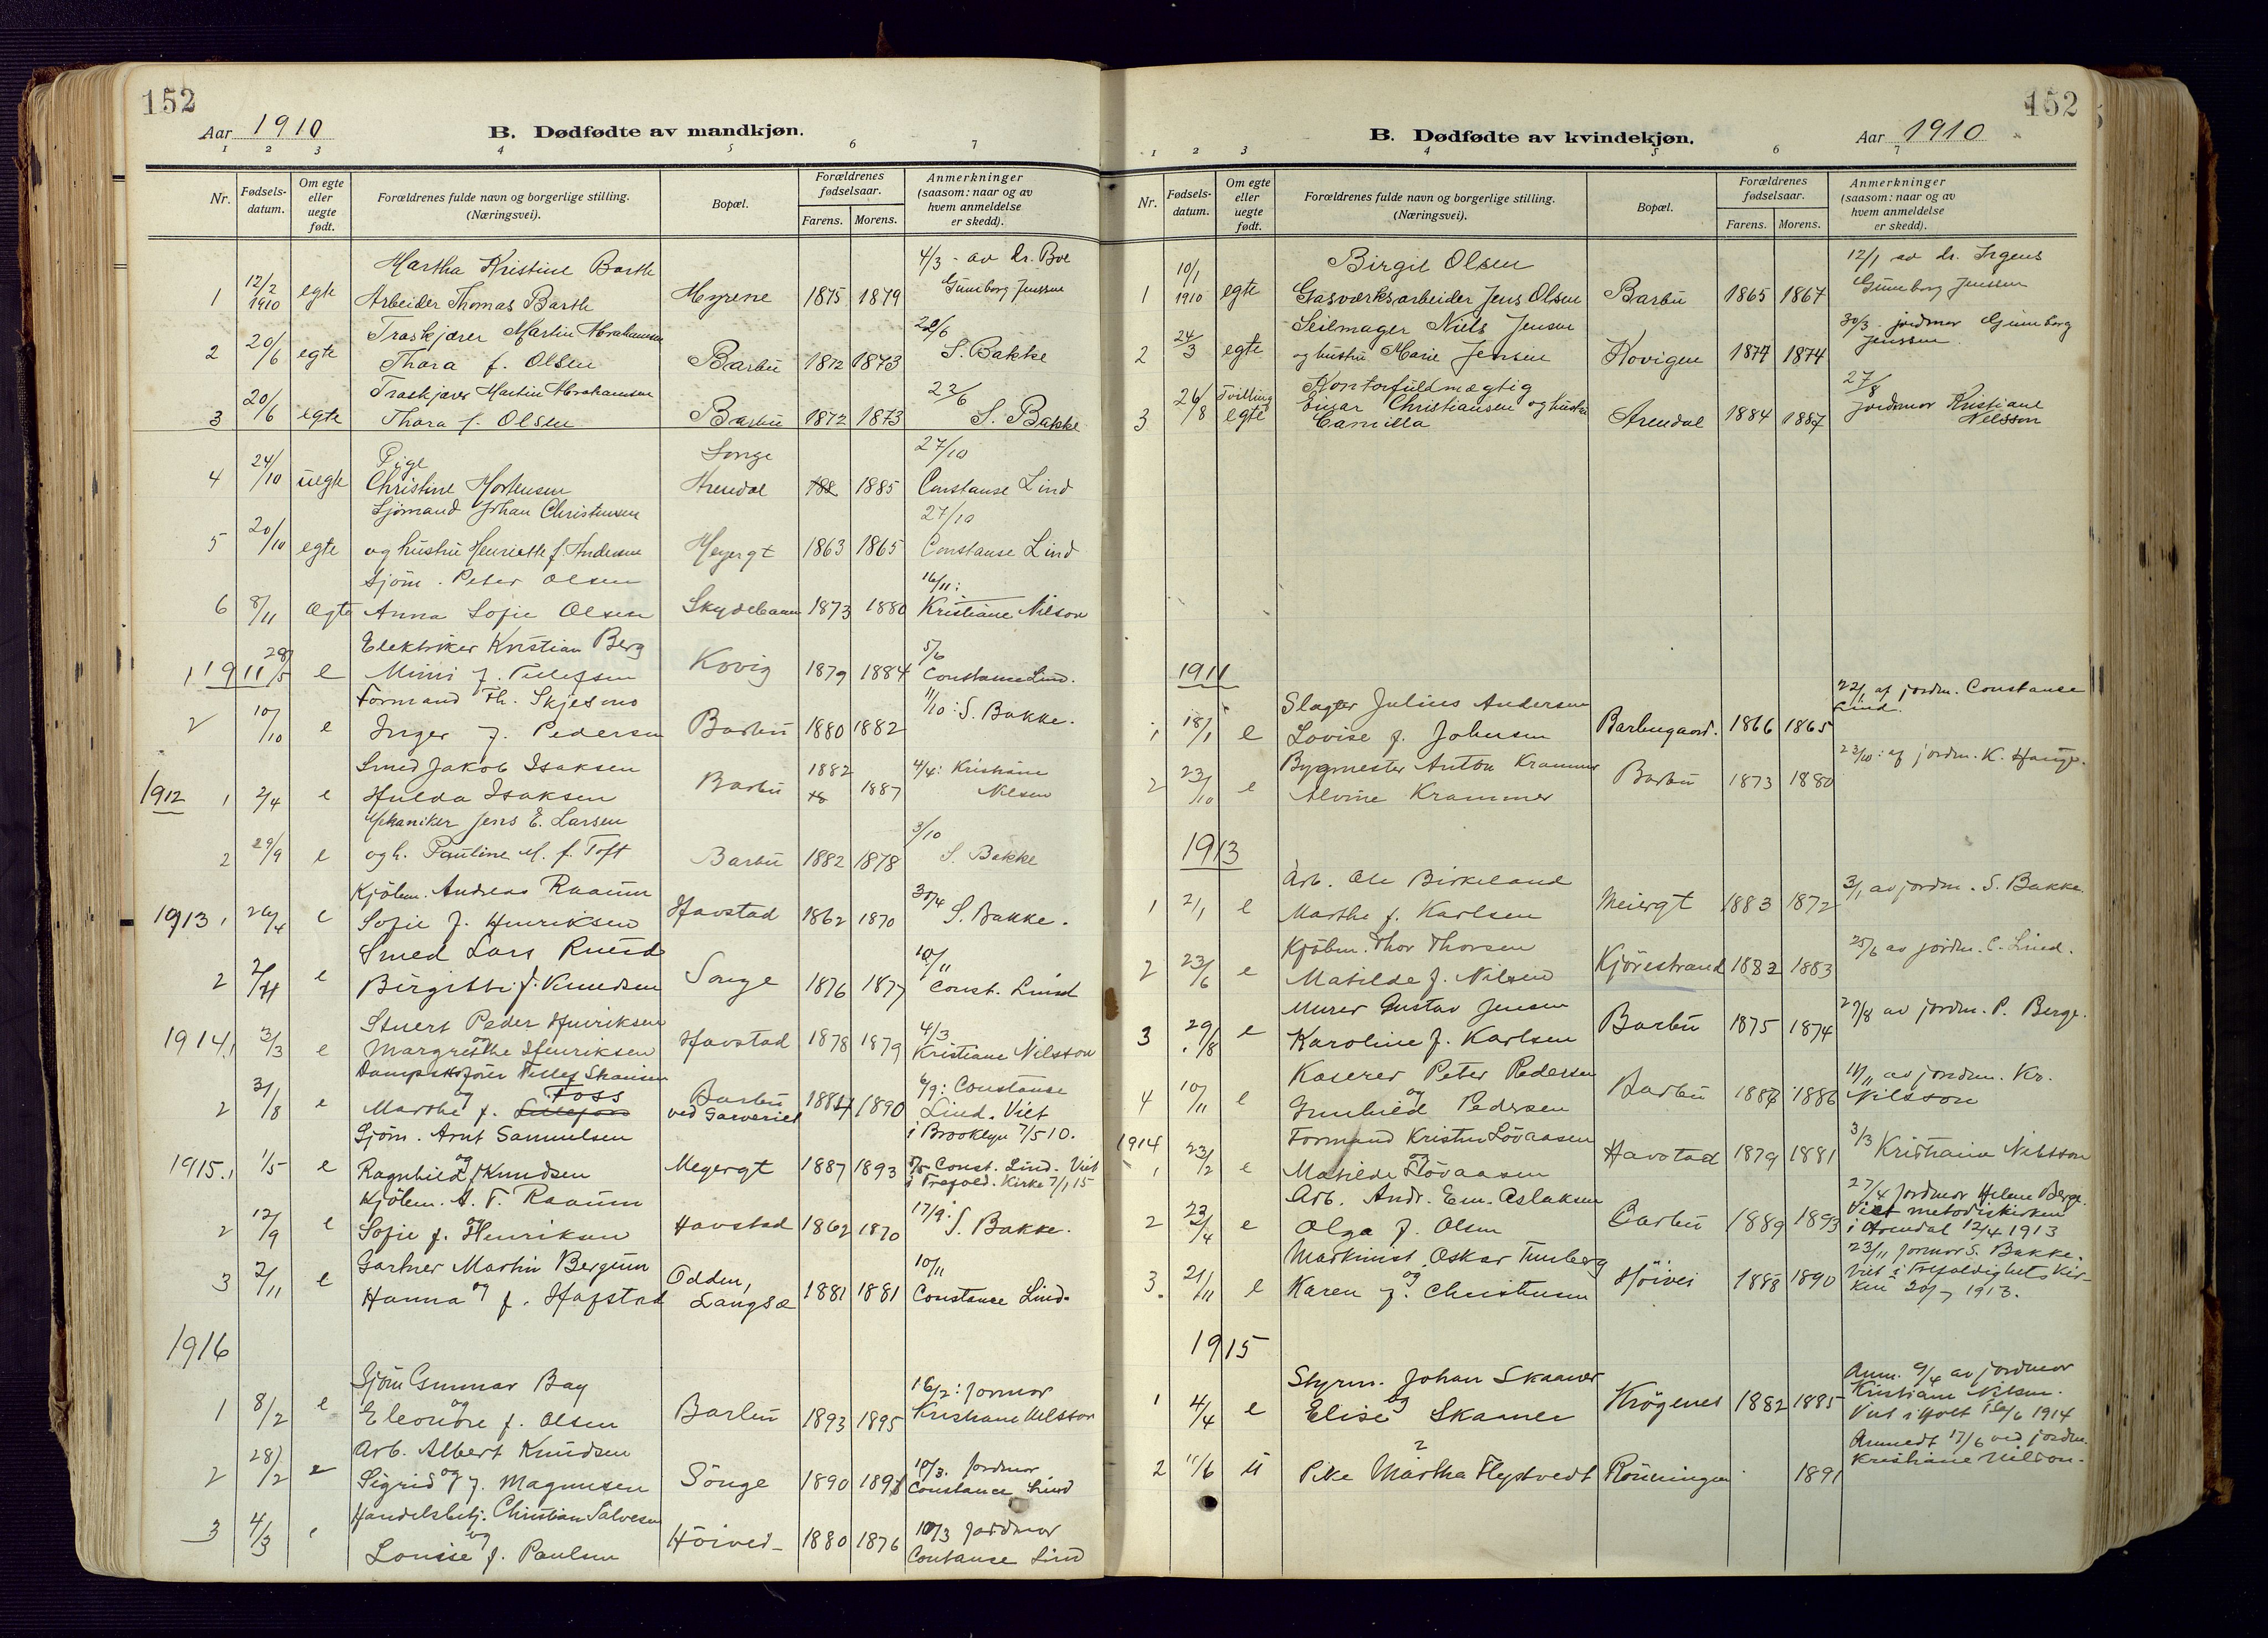 152
Aar 1910
B. Dødfødte av mandkjøn.
1 2 3 4 5 6 7
Nr. Fødsels-datum. Om egte eller uegte født. Forældrenes fulde navn og borgerlige stilling. (Næringsvei). Bopæl. Forældrenes fødselsaar. Farens. Morens. Anmerkninger (saasom: naar og av hvem anmeldelse er skedd).
Martha Kristine Barth 4/3 - av dr. Boe
1 12/2 1910 egte Arbeider Thomas Barth Myrene 1875 1879 Gunborg Jenssen
Traskjærer Martin Abrahamsen 22/6
2 20/6 egte Thora f. Olsen Barbu 1872 1873 S. Bakke
Traskjærer Martin Abrahamsen 22/6
3 20/6 egte Thora f. Olsen Barbu 1872 1873 S. Bakke
Pige Songe 27/10
4 24/10 uegte Christine Mortensen Arendal 188 1885 Constanse Lind
Sjømand Johan Christensen 27/10
5 20/10 egte og hustru Henriette f. Andersen Meyergt 1863 1865 Constanse Lind
Sjøm. Peter Olsen 16/11:
6 8/11 Ægte Anna Sofie Olsen Skydebanen 1873 1880 Kristiane Nilson
Elektriker Kristian Berg 5/6
1 1911 28/5 e Mimi f. Tellefsen Kovig 1879 1884 Constanse Lind.
Formand Th. Skjesons 11/10: S. Bakke.
2 10/10 e Inger f. Pedersen Barbu 1880 1882
Smed Jakob Isaksen 1882 4/4: Kristiane
1912 1 2/4 e Hulda Isaksen Barbu 18 1887 Nilsen
Mekaniker Jens E. Larsen 3/10
2 29/9 e og h. Pauline M. f. Toft Barbu 1882 1878 S. Bakke
Kjøbm. Andreas Raaum 30/4
1913 1 26/4 e Sofie f. Henriksen Havstad 1862 1870 S. Bakke.
Smed Lars Ruud 10/11
2 2/11 e Birgitte f. Knudsen Songe 1876 1877 Const. Lind
Stuert Peder Henriksen 4/3
1914 1 3/3 e og Margrethe Henriksen Havstad 1878 1879 Kristiane Nilsson
Foss Barbu 6/9: Constanse
2 31/8 e Marthe og f. Tellefsen ved Garveriet 1884 1890 Lind. Viet
Sjøm. Arnt Samuelsen i Brooklyn 7/5 10.
1915. 1 1/5 e Ragnhild og f. Knudsen Meyergt 1887 1893 Const. Lind. Viet
Kjøbm. A. T. Raaum i Trefold. Kirke 7/1 15
2 12/9 e Sofie og f. Henriksen Havstad 1862 1870 17/9: S. Bakke.
Gartner Martin Bergum Odden, 10/11
3 2/11 e Hanna og f. Hafstad Langsæ 1881 1881 Constance Lind.
1916
Sjøm Gunnar Bay 16/2: Jormor
1 8/2 e Eleonore og f. Olsen Barbu 1893 1895 Kristiane Nilsson
Arb. Albert Knudsen 10/3. Jordmor
2 28/2 e Sigrid og f. Magnusen Songe 1890 1891 Constance Lind
Handelsbetj. Christian Salvesen 10/3 Jordmor
3 4/3 e Louise og f. Paulsen Höived- 1880 1876 Contanse Lind
152
B. Dødfødte av kvindekjøn.
Aar 1910
1 2 3 4 5 6 7
Nr. Fødsels-datum. Om egte eller uegte født. Forældrenes fulde navn og borgerlige stilling. (Næringsvei). Bopæl. Forældrenes fødselsaar. Farens. Morens. Anmerkninger (saasom: naar og av hvem anmeldelse er skedd).
Birgit Olsen 12/1 av dr. Irgens
1 10/1 1910 egte Gasværksarbeider Jens Olsen Barbu 1865 1867 Gunborg Jenssen
Seilmager Niels Jensen 30/3 jordmor Gunborg
2 24/3 egte og hustru Marie Jensen Kovigen 1877 1874 Jenssen.
Tvilling Kontorfuldmægtig 27/8
3 26/8 egte Einar Christiansen og hustru Camilla Arendal 1884 1887 jordmor Kristiane Nilsson
1911
Slagter Julius Andersen 22/1 af jordm. Constance
1 18/1 e Lovise f. Johnsen Barbugaard. 1866 1865 Lind.
Bygmester Anton Krammer 23/10: af jordm. K. Hauge.
2 23/10 e Alvine Krammer Barbu 1873 1880
1913
Arb. Ole Birkeland 3/1 av jordm. S. Bakke.
1 2/1 e Marthe f. Karlsen Meiergt 1883 1872
Kjöbm. Thor Thorsen 25/6 av jordm. C. Lind.
2 23/6 e Matilde f. Nilsen Kjörestrand 1882 1883
Murer Gustav Jensen 29/8 av jordm. P. Berge.
3 29/8 e Karoline f. Karlsen Barbu 1875 1874
Kaserer Peter Pedersen 11/11 av jordm. Kr.
4 10/11 e og Gunhild Pedersen Barbu 1886 1886 Nilsson
1914 Formand Kristen Lövaasen 3/3 Kristiane Nilsson
1 23/2 e og Matilde Lövaasen Havstad 1879 1881
Arb. Andr. Em. Aslaksen 27/4 Jordmor Helene Berge.
2 23/4 e Olga f. Olsen Barbu 1889 1893 Viet metodistkirken i Arendal 12/4 1913
Maskinist Oskar Tunberg 23/11 Jormor S. Bakke.
3. 21/11 e Karen og f. Christensen Höivei 1888 1890 Viet i Trefoldighets Kirken 20/7 1913.
1915
Styrm. Johan Skaamer Anm. 9/4 av jordmor
1 4/4 e Elise og Skamer Krögenes 1882 1885 Kristiane Nilsen. Viet i Holt 16/6 1914
2 11/6 U Pike Märtha Flystvedt Rönningen 1891 Anmeldt 17/6 ved jordm. Kristiane Nilson.